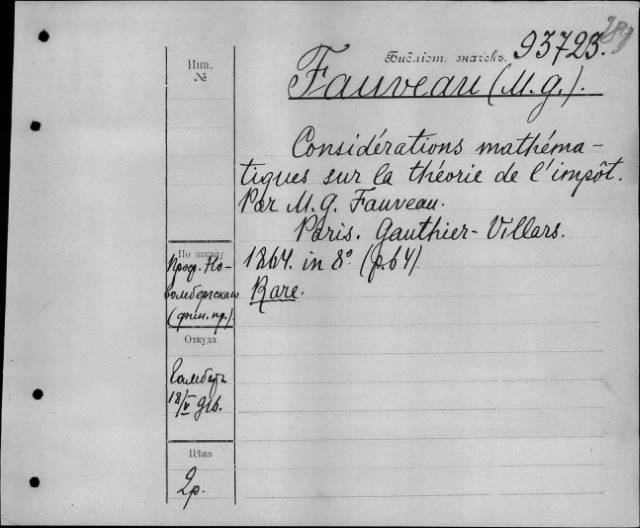 289
Библіот. значекъ. 93723.
Инв. №
Fauveau (M. G.).
Considérations mathéma-
tiques sur la théorie de l'impôt.
Par M. G. Fauveau.
Paris. Gauthier-Villars.
1864. in 8° (p. 64)
Rare.
По заказу
Проф. Но-
вомбергскаго
(фин. пр.).
Откуда
18/V
Цѣна
2р.